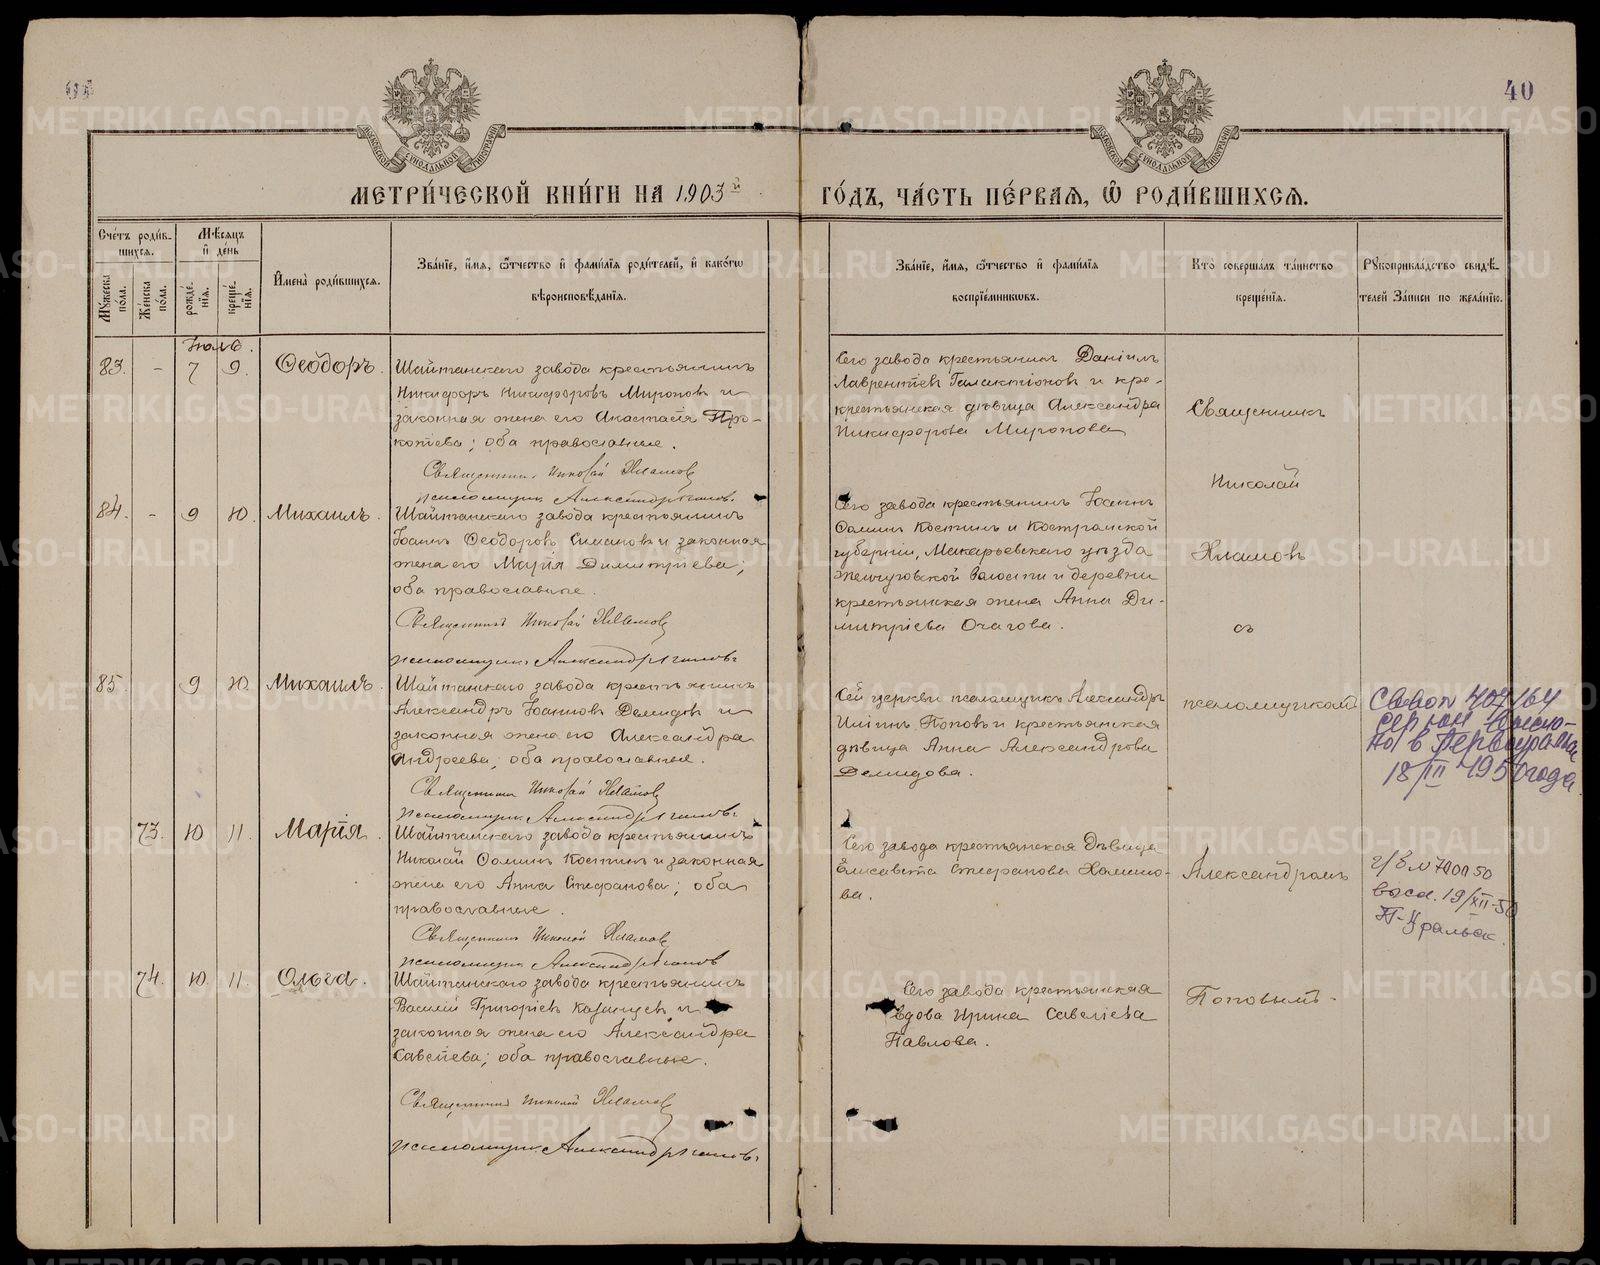 40
МОСКОВСКОЙ СѴНОДАЛЬНОЙ ТИПОГРАФІИ
МОСКОВСКОЙ СѴНОДАЛЬНОЙ ТИПОГРАФІИ
МЕТРИ́ЧЕСКОЙ КНИ́ГИ НА 1903й ГО́ДЪ, ЧА́СТЬ ПЕ́РВАѦ, Ѽ РОДИ́ВШИХСѦ.
Сче́тъ роди́в-
шихсѧ.
Мꙋжеска по́ла.
Же́нска по́ла.
Мѣ́сѧцъ
и҆ де́нь
рожде́-
нїѧ.
креще́-
нїѧ.
И҆мена̀ роди́вшихсѧ.
Зва́нїе, и҆́мѧ, ѻ҆́тчество и҆ фами́лїѧ роди́телей, и҆ како́гѡ
вѣроисповѣ́данїѧ.
Зва́нїе, и҆́мѧ, ѻ҆́тчество и҆ фами́лїѧ
воспрїе́мникѡвъ.
Кто̀ соверша́лъ та́инство
креще́нїѧ.
Рꙋкоприкла́дство свидѣ́-
телей За́писи по жела́нїю.
Іюль.
83. - 7 9. Ѳеодоръ.
Шайтанскаго завода крестьянинъ
Никифоръ Никифоровъ Мироновъ и
законная жена его Анастасія Про-
копіева; оба православные.
Священникъ Николай Хламовъ
псаломщикъ Александръ Поповъ.
Сего завода крестьянинъ Даніилъ
Лаврентіевъ Галактіоновъ и кре-
крестьянская дѣвица Александра
Никифорова Миронова
Священникъ
Николай
Хламовъ
съ
псаломщикомъ
Александромъ
Поповымъ.
84. - 9 10. Михаилъ.
Шайтанскаго завода крестьянинъ
Іоаннъ Ѳеодоровъ Симановъ и законная
жена его Марія Димитріева;
оба православные.
Священникъ Николай Хламовъ
псаломщикъ Александръ Поповъ.
Сего завода крестьянинъ Іоаннъ
Ѳоминъ Костинъ и Костромской
губерніи, Макарьевскаго уѣзда
волости и деревни
крестьянская жена Анна Ди-
митріева Очагова.
85. 9 10. Михаилъ.
Шайтанскаго завода крестьянинъ
Александръ Іоанновъ Демидовъ и
законная жена его Александра
Андреева; оба православные.
Священникъ Николай Хламовъ
псаломщикъ Александръ Поповъ.
Сей церкви псаломщикъ Александръ
Поповъ и крестьянская
дѣвица Анна Александрова
Демидова.
407164
в Первоуральске
18/III 1950 года
73. 10 11. Марія.
Шайтанскаго завода крестьянинъ
Николай Ѳоминъ Костинъ и законная
жена его Анна Стефанова; оба
православные.
Священникъ Николай Хламовъ
псаломщикъ Александръ Поповъ
Сего завода крестьянская дѣвица
Елисавета Стефанова
ва.
19/XII-50
П-Уральск.
74. 10 11. Ольга.
Шайтанскаго завода крестьянинъ
Василій Григоріевъ Казанцевъ и
законная жена его Александра
Савеліева; оба православные.
Священникъ Николай Хламовъ
псаломщикъ Александръ Поповъ.
Сего завода крестьянская
вдова Ирина Савеліева
Павлова.
METRIKI.GASO-URAL.RU